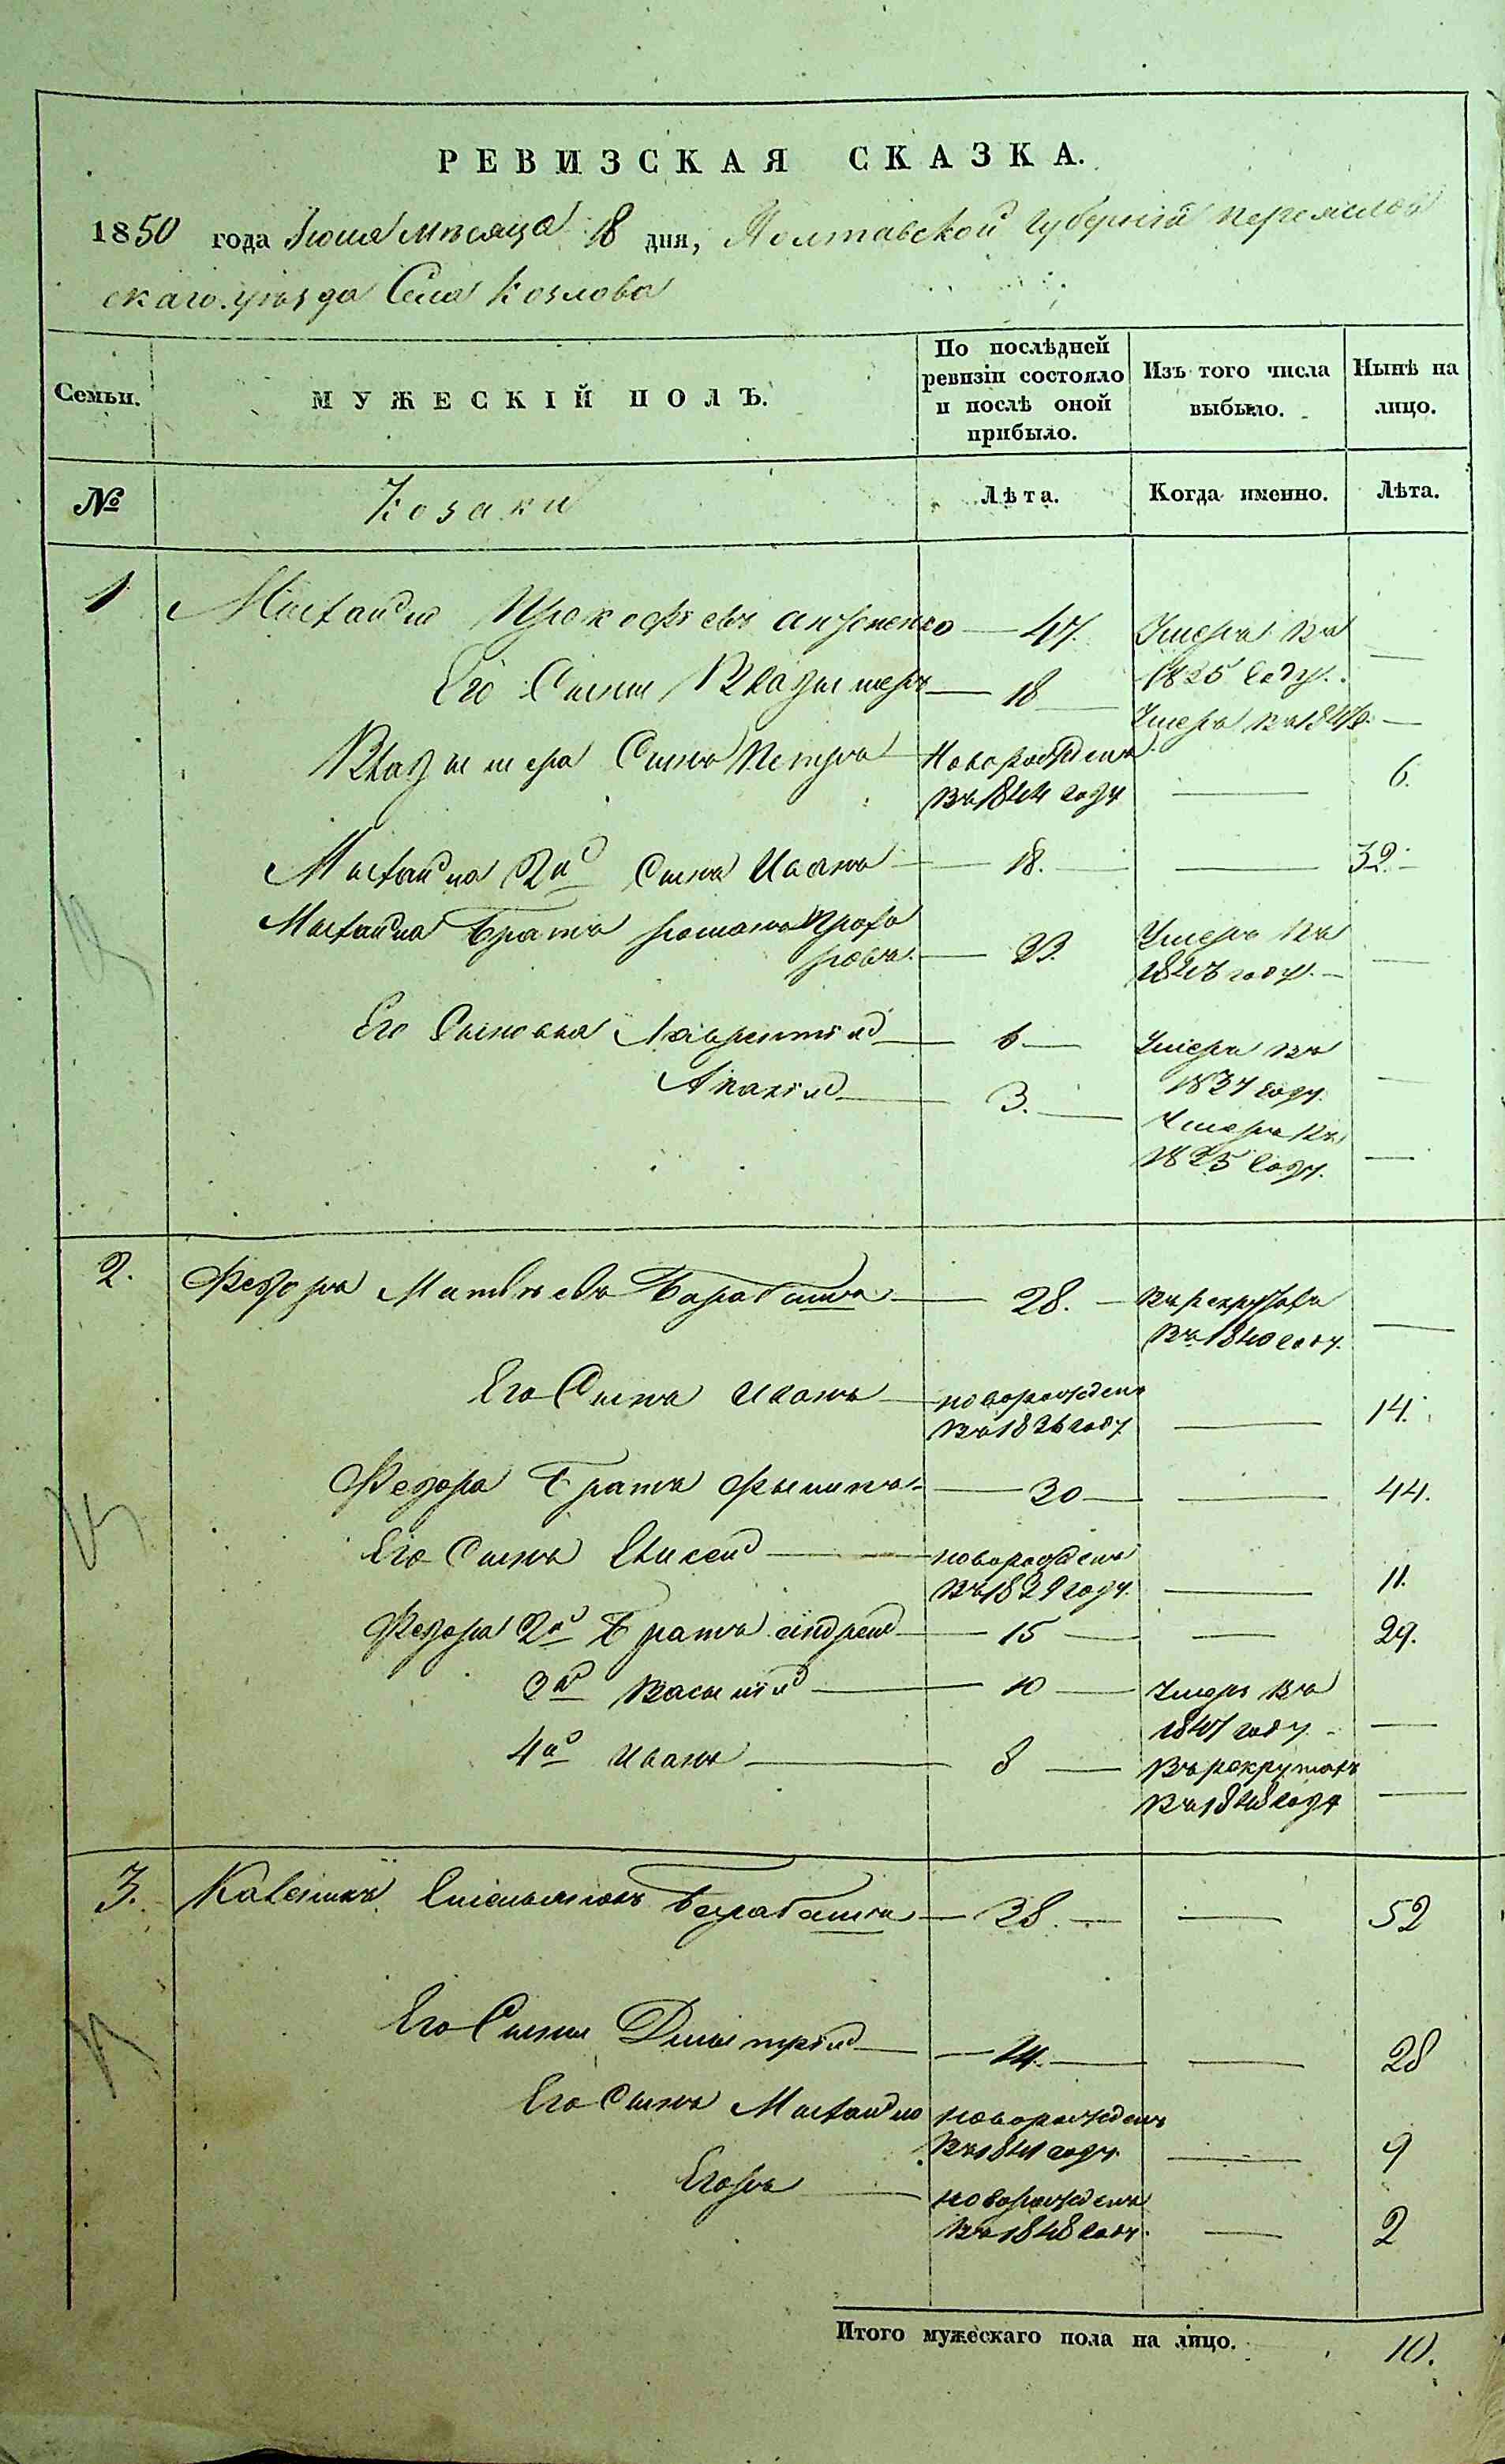 РЕВИЗСКАЯ СКАЗКА.
1850 года Іюня мѣсяца 18 дня, Полтавской Губерніи Переяслов
скаго уѣзда Села Козлова
Семьи.
МУЖЕСКІЙ ПОЛЪ.
По послѣдней
ревизіи состояло
и послѣ оной
прибыло.
Изъ того числа
выбыло.
Нынѣ на
лицо.
№
Козаки
Лѣта.
Когда именно.
Лѣта.
1 Михайло Прокофіевъ — 47. Умеръ въ
1835 году. —
Его Сыны Владымеръ — 18 — Умеръ въ —
Владымера Сынъ Петръ Новорожденъ
въ 1844 году — 6.
Михайла 2й Сынъ Иванъ — 18. — — 32. —
Михайла Братъ Романъ Прохо
ровъ. — 33. Умеръ въ
году. — —
Его Сыновья Лаврентій — 6 — Умеръ въ
1837 году. —
3. — Умеръ въ
1835 году. —
2. Федоръ Матвѣевъ Барабашъ — 28. — Въ рекрутахъ
въ 1840 году. —
Его Сынъ Иванъ — новорожденъ
въ 1836 году — 14.
Федора Братъ Филипъ. — 30 — — 44.
Его Сынъ Елисей — новорожденъ
въ 1839 году. — 11.
Федора 2й Братъ андрей — 15 — — 29.
3й Василій — 10 — Умеръ въ
1847 году. —
4й Иванъ — 8 — Въ рекрутахъ
въ 1848 году —
3. Каленикъ Емельяновъ Барабашъ — 38. — — 52
Его Сыны Дмытрій — 14. — — 28
Его Сынъ Михайло новорожденъ
въ 1841 году. — 9
Егоръ — новорожденъ
въ 1848 году. — 2
Итого мужескаго пола на лицо. 10.